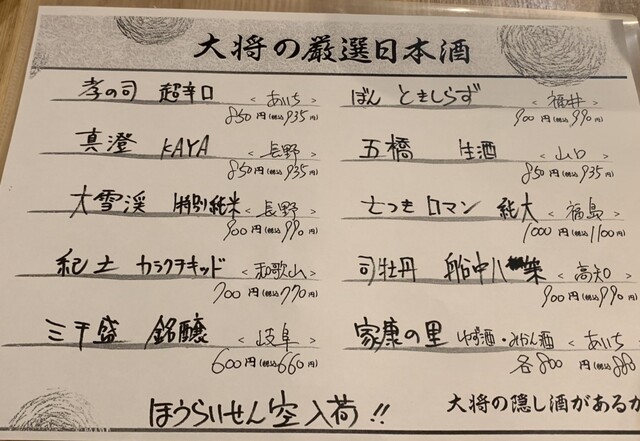 大将の厳選日本酒
孝の司 超辛口 <あいち>
850円(税込935円)
真澄 KAYA <長野>
850円(税込935円)
大雪渓 特別純米 <長野>
900円(税込990円)
紀土 カラクチキッド <和歌山>
700円(税込770円)
三千盛 銘醸 <岐阜>
600円(税込660円)
ぼん ときしらず <福井>
900円(税込990円)
五橋 生酒 <山口>
850円(税込935円)
七つきロマン 純大 <福島>
1000円(税込1100円)
司牡丹 船中八策 <高知>
900円(税込990円)
家康の里 ゆず酒・みかん酒 <あいち>
各800円(税込880
ほうらいせん 空 入荷!!
大将の隠し酒があるか